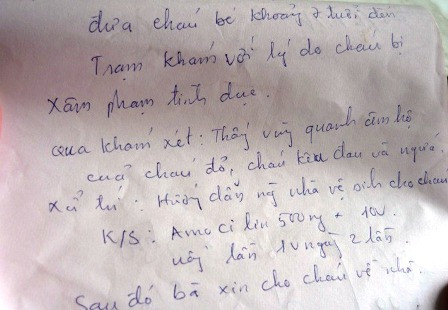 đưa cháu bé khoảng 7 tuổi đến
Trạm khám với lý do cháu bị
xâm phạm tình dục.
Qua khám xét: Thấy vùng quanh âm hộ
của cháu đỏ, cháu kêu đau và ngứa.
Xử trí: Hướng dẫn ng nhà vệ sinh cho cháu
K/S: Amoxilin 500mg + 10v.
uống lần 1v ngày 2 lần.
Sau đó bà xin cho cháu về nhà.